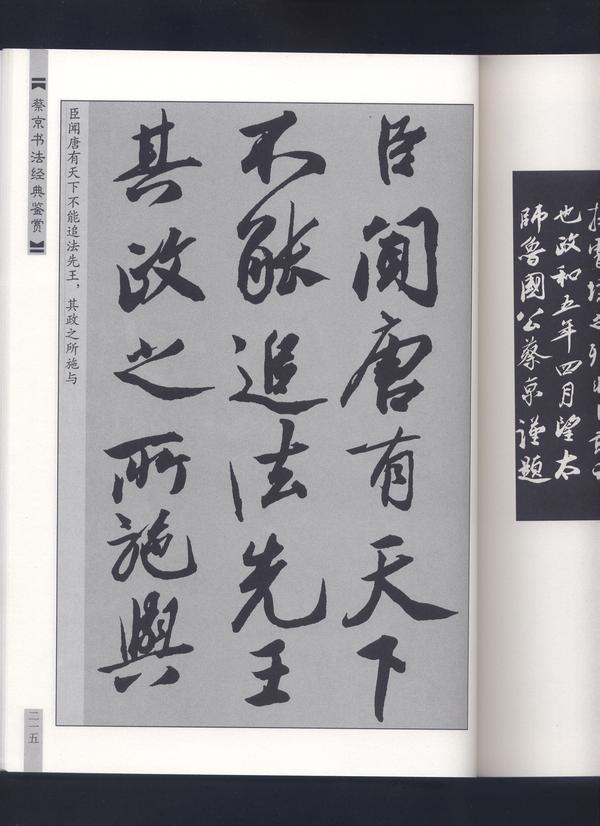 也政和五年四月望太
師魯國公蔡京謹題
臣闻唐有天下
不能追法先王
其政之所施與
臣闻唐有天下不能追法先王，其政之所施与
【蔡京书法经典鉴赏】
二一五